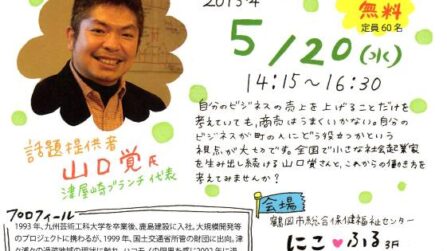 2015.4
無料
定員60名
5/20(水)
14:15～16:30
自分のビジネスの売上を上げることだけを
考えていても、商売はうまくいかない。自分の
ビジネスが町の人にどう役立つかという
視点が大切です。全国で小さな社会起業家
を生み出し続ける山口覚さんと、これからの働き方を
考えてみませんか？
話題提供者
山口覚氏
津屋崎ブランチ代表
会場
鶴岡市総合保健福祉センター
にこ♥ふる3F
プロフィール
1993年、九州芸術工科大学を卒業後、鹿島建設に入社。大規模開発等
のプロジェクトに携わるが、1999年、国土交通省所管の財団に出向。津